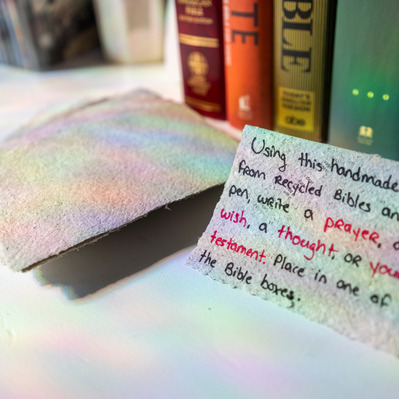 BLE
TODAY'S
ENGLISH
VERSION
abs
Using this handmade
from recycled Bibles an
pen, write a prayer, a
wish, a thought, or your
testament. Place in one of
the Bible boxes.